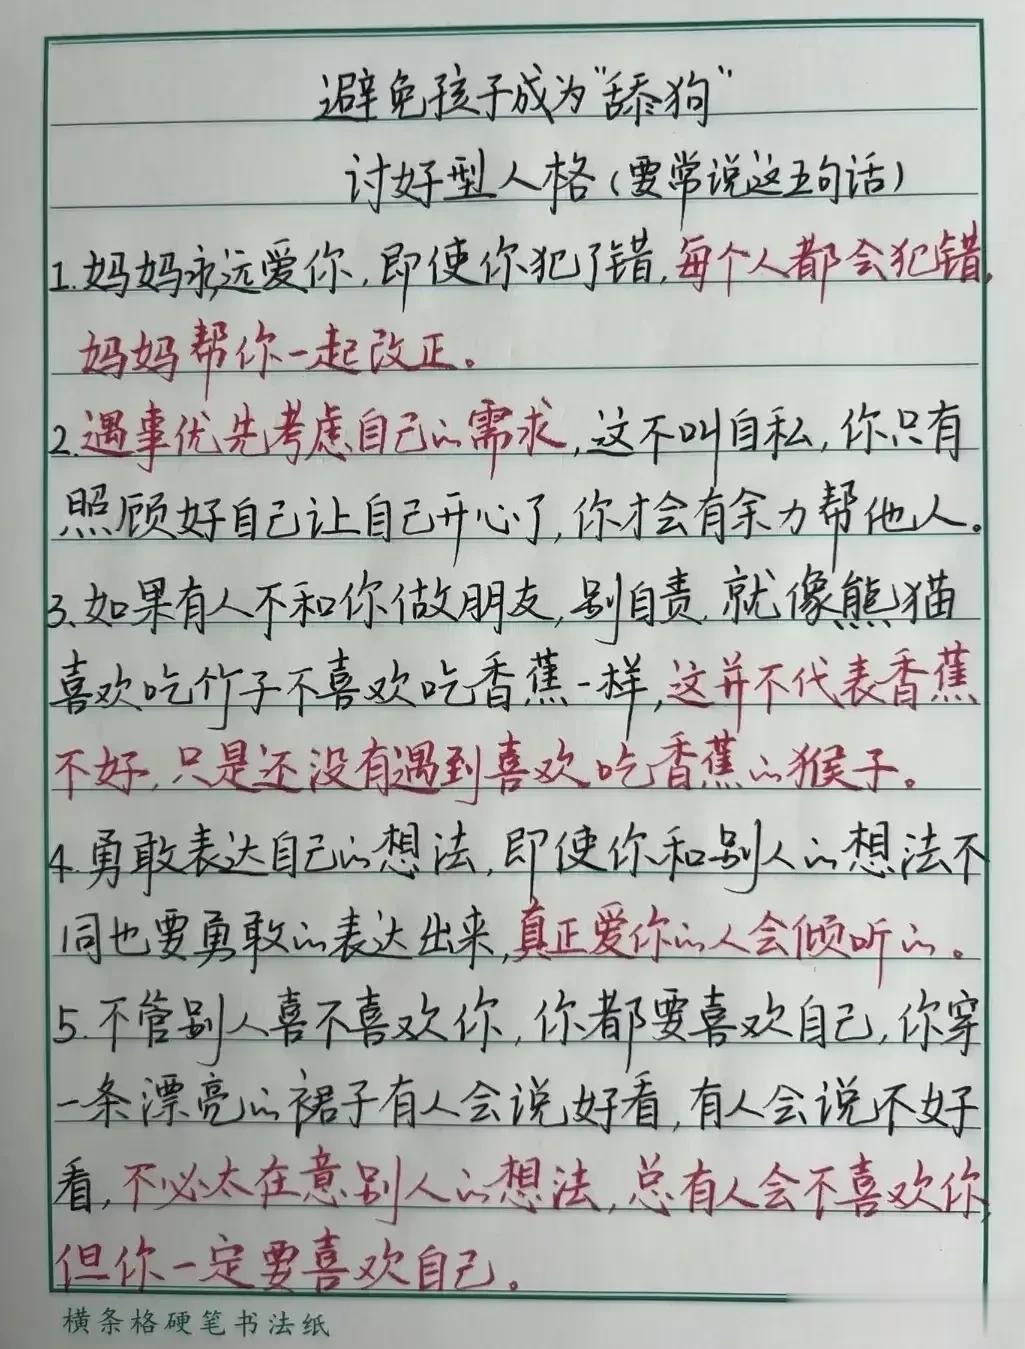 避免孩子成为"舔狗"
讨好型人格(要常说这五句话)
1.妈妈永远爱你,即使你犯了错,每个人都会犯错,
妈妈帮你一起改正。
2.遇事优先考虑自己的需求,这不叫自私,你只有
照顾好自己让自己开心了,你才会有余力帮他人。
3、如果有人不和你做朋友,别自责,就像熊猫
喜欢吃竹子不喜欢吃香蕉一样,这并不代表香蕉
不好,只是还没有遇到喜欢吃香蕉的猴子。
4.勇敢表达自己的想法,即使你和别人的想法不
同也要勇敢的表达出来,真正爱你的人会倾听的。
5.不管别人喜不喜欢你,你都要喜欢自己,你穿
一条漂亮的裙子有人会说好看,有人会说不好
看,不必太在意别人的想法,总有人会不喜欢你,
但你一定要喜欢自己。
横条格硬笔书法纸